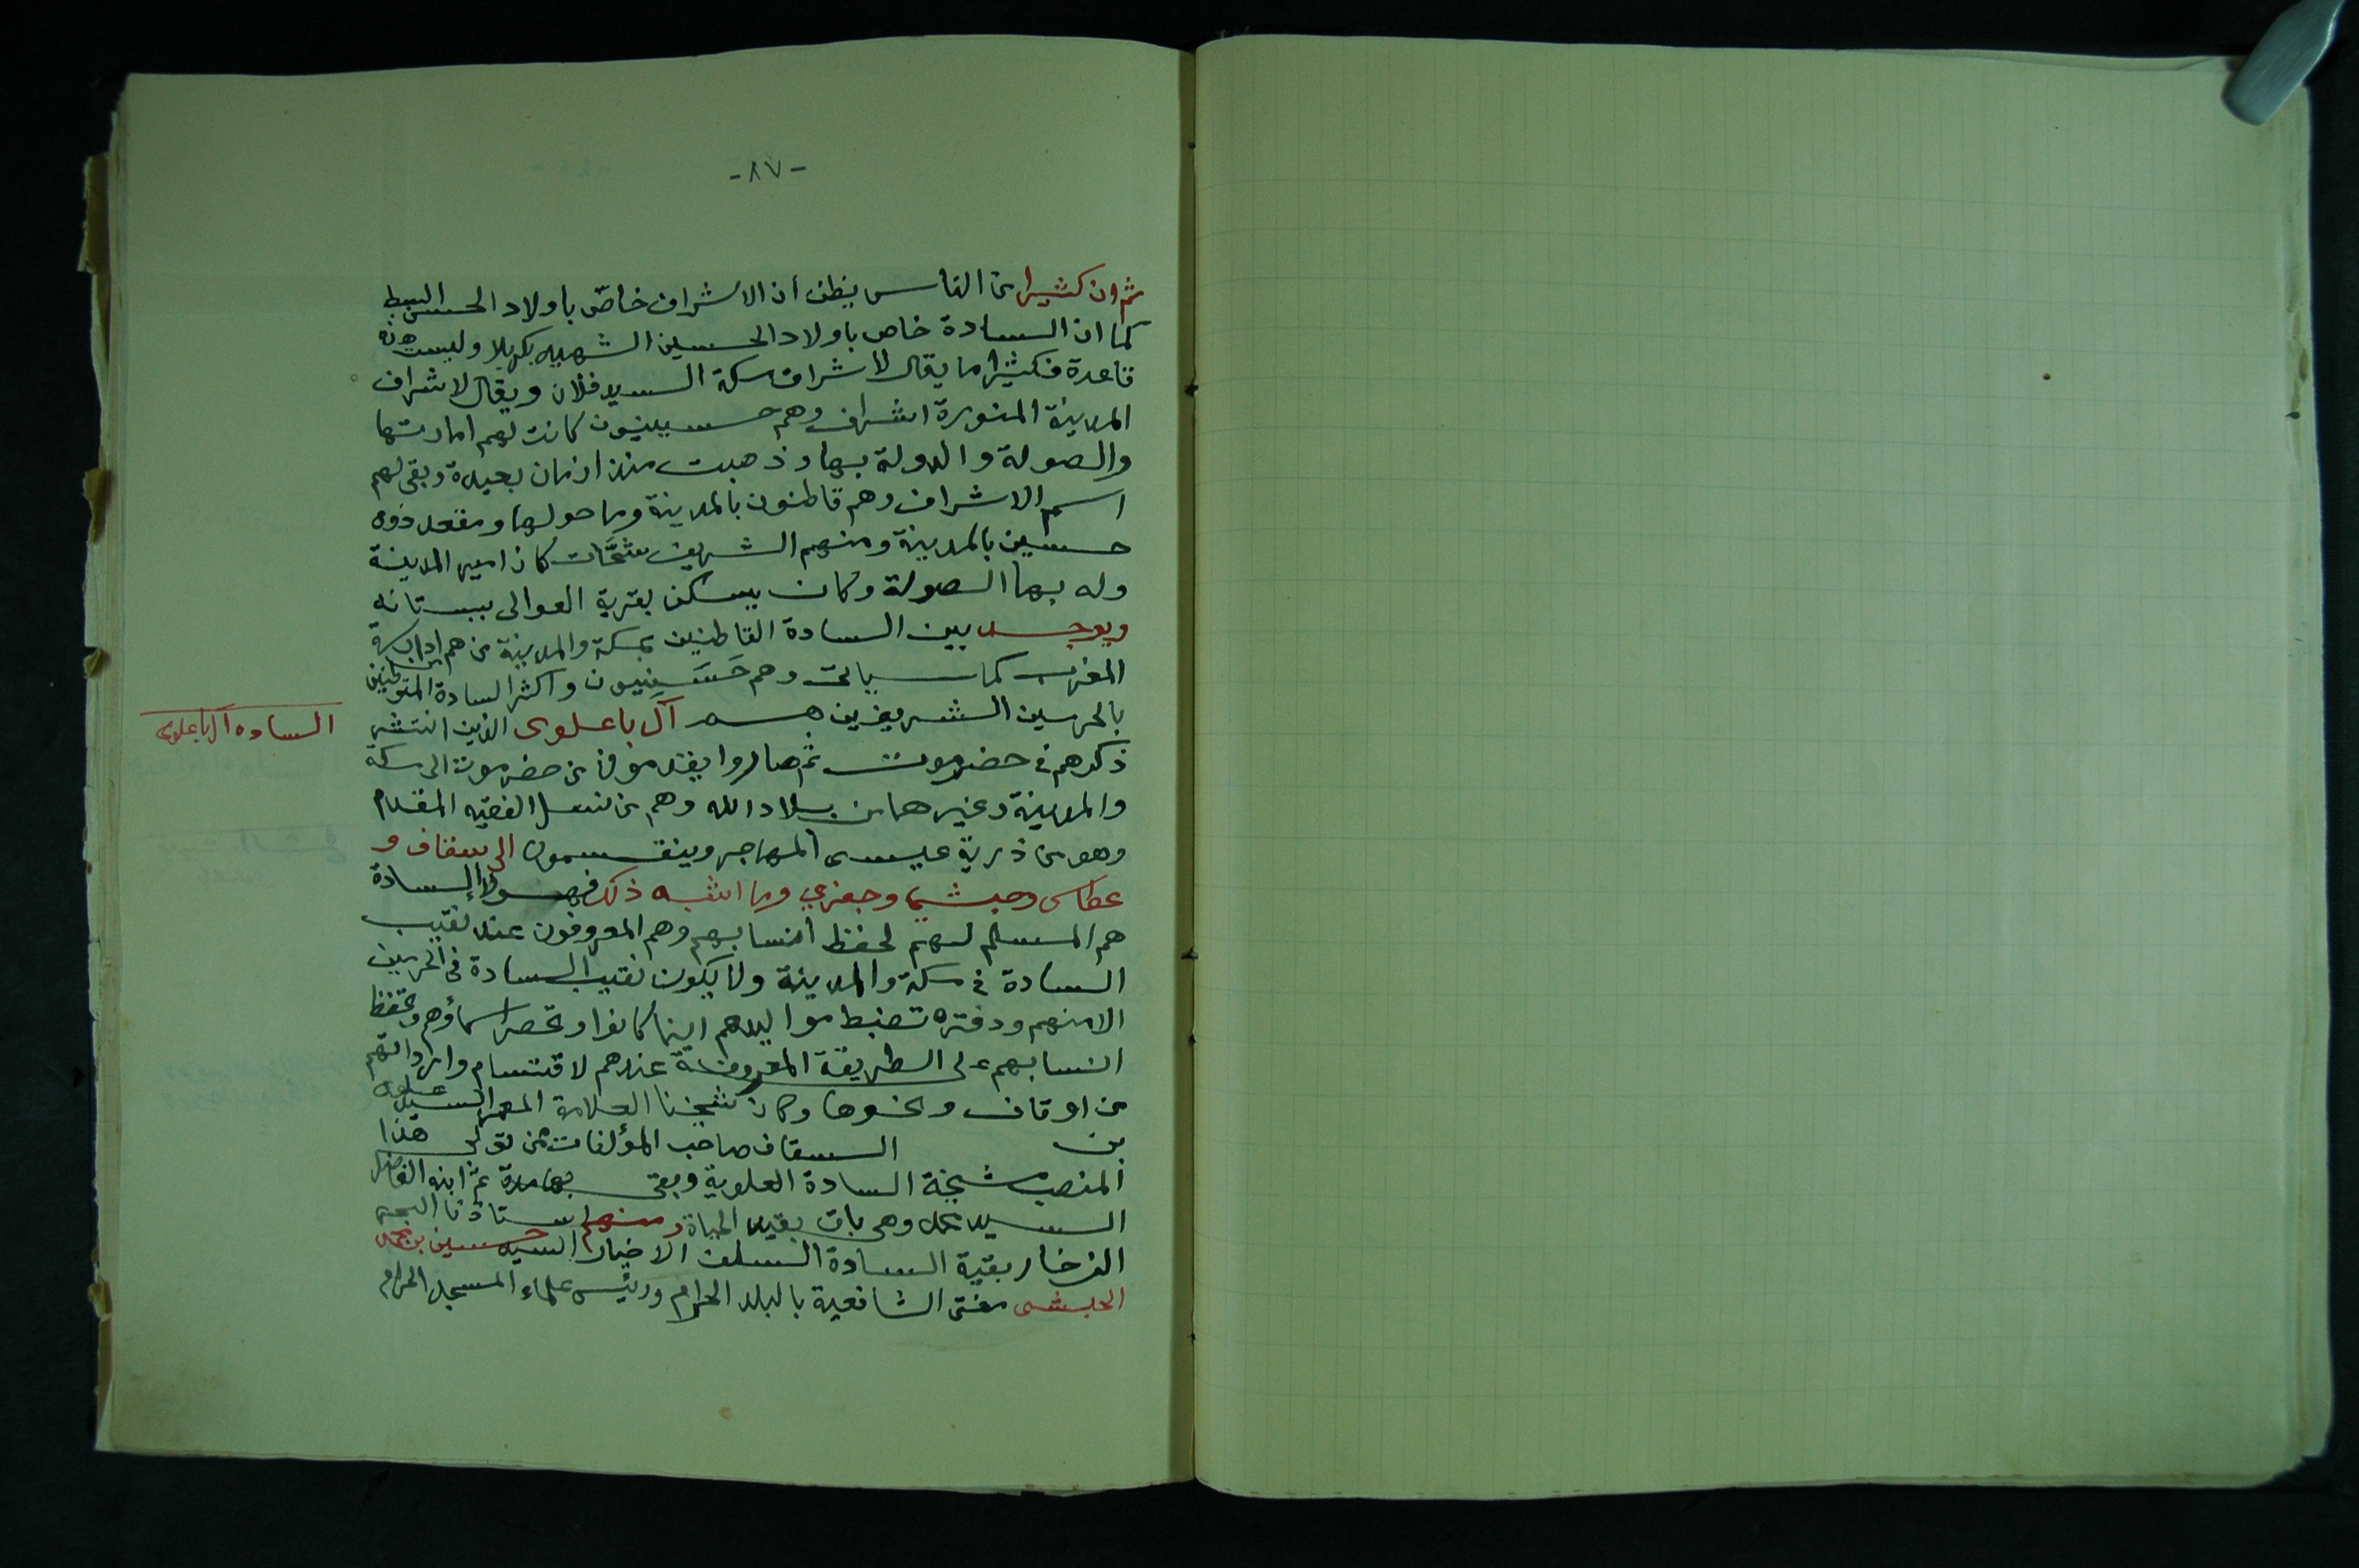 -٨٧-
ثم ان كثيرا من الناس يظن أن الاشراف خاص باولاد الحسن السبط
كما ان السادة خاص باولاد الحسين الشهيد بكربلا وليست هذه
قاعدة فكثيرا ما يقال لاشراف مكة السيد فلان ويقال لاشراف
المدينة المنورة اشراف وهم حسينيون كانت لهم امارتها
والصولة والدولة بها وذهبت منذ ازمان بعيدة وبقى لهم
اسم الاشراف وهم قاطنون بالمدينة وما حولها ومقعد ذوى
حسين بالمدينة ومنهم الشريف شحَّات كان امير المدينة
وله بها الصولة وكان يسكن بقرية العوالى ببستانه
ويوجد بين السادة القاطنين بمكة والمدينة من هم ادارسة
المغرب كما سيأتى وهم حَسَنِيون واكثر السادة المتوطنين
بالحرمين الشريفين هم آل باعلوى الذين انتشر
السادة آل باعلوى
ذكرهم فى حضرموت ثم صاروا يقدمون من حضرموت الى مكة
والمدينة وغيرهما من بلاد الله وهم من نسل الفقيه المقدم
وهو من ذرية عيسى المهاجر وينقسمون الى سقاف و
عطاس وحبشي وجفري وما اشبه ذلك فهولا السادة
هم المسلم لهم لحفظ أنسابهم وهم المعروفون عند نقيب
السادة فى مكة والمدينة ولا يكون نقيب السادة فى الحرمين
الا منهم ودفتره تضبط مواليدهم اينما كانوا وتحصر اسماؤهم وتحفظ
انسابهم على الطريقة المعروفة عندهم لاقتسام وارداتهم
من اوقاف ونحوها وكان شيخنا العلامة المعمر السيد علوى
بن السقاف صاحب المؤلفات ممن تولى هذا
المنصب مشيخة السادة العلوية وبقى بها مدة ثم ابنه الفاضل
السيد محمد وهى باق بقيد الحياة ومنهم استاذنا البحر
الزخار بقية السادة السلف الاخيار السيد حسين بن محمد
الحبشى مفتى الشافعية بالبلد الحرام ورئيس علماء المسجد الحرام